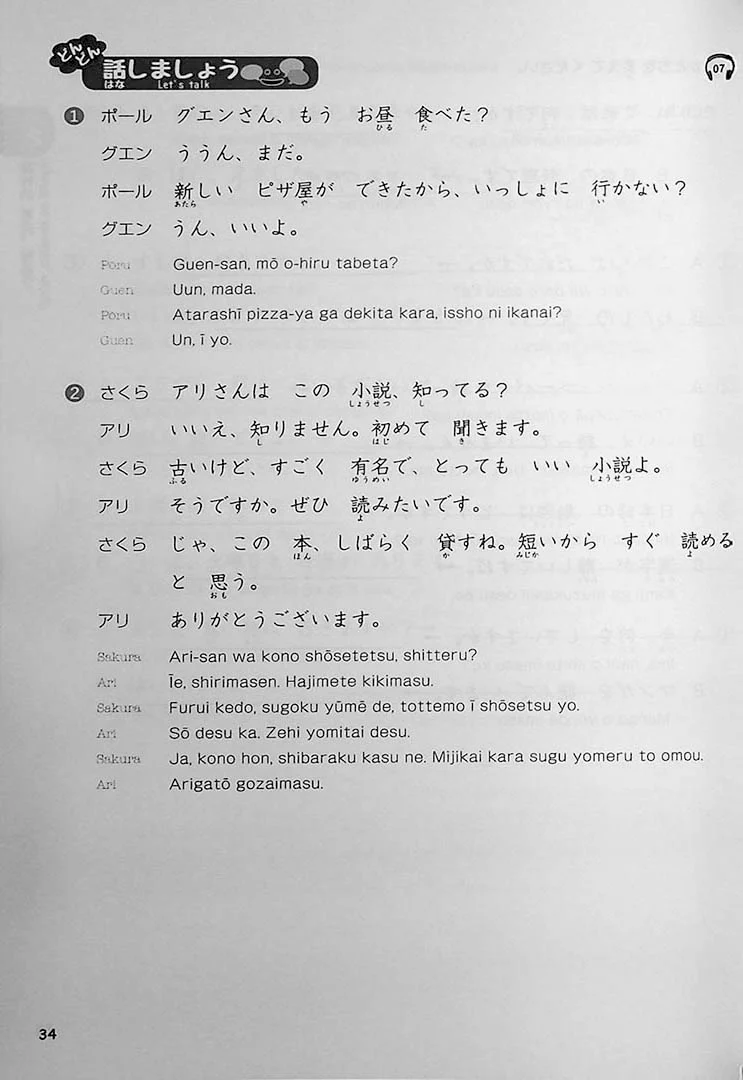 どんどん
話しましょう
はな
Let's talk
07
1 ポール グエンさん、もう お昼 食べた？
ひる た
グエン ううん、まだ。
ポール 新しい ピザ屋が できたから、いっしょに 行かない？
あたら や い
グエン うん、いいよ。
Pōru Guen-san, mō o-hiru tabeta?
Guen Uun, mada.
Pōru Atarashī pizza-ya ga dekita kara, issho ni ikanai?
Guen Un, ī yo.
2 さくら アリさんは この 小説、知ってる？
しょうせつ し
アリ いいえ、知りません。初めて 聞きます。
し はじ き
さくら 古いけど、すごく 有名で、とっても いい 小説よ。
ふる ゆうめい しょうせつ
アリ そうですか。ぜひ 読みたいです。
よ
さくら じゃ、この 本、しばらく 貸すね。短いから すぐ 読める
ほん か みじか よ
と 思う。
おも
アリ ありがとうございます。
Sakura Ari-san wa kono shōsetetsu, shitteru?
Ari Īe, shirimasen. Hajimete kikimasu.
Sakura Furui kedo, sugoku yūmē de, tottemo ī shōsetsu yo.
Ari Sō desu ka. Zehi yomitai desu.
Sakura Ja, kono hon, shibaraku kasu ne. Mijikai kara sugu yomeru to omou.
Ari Arigatō gozaimasu.
34